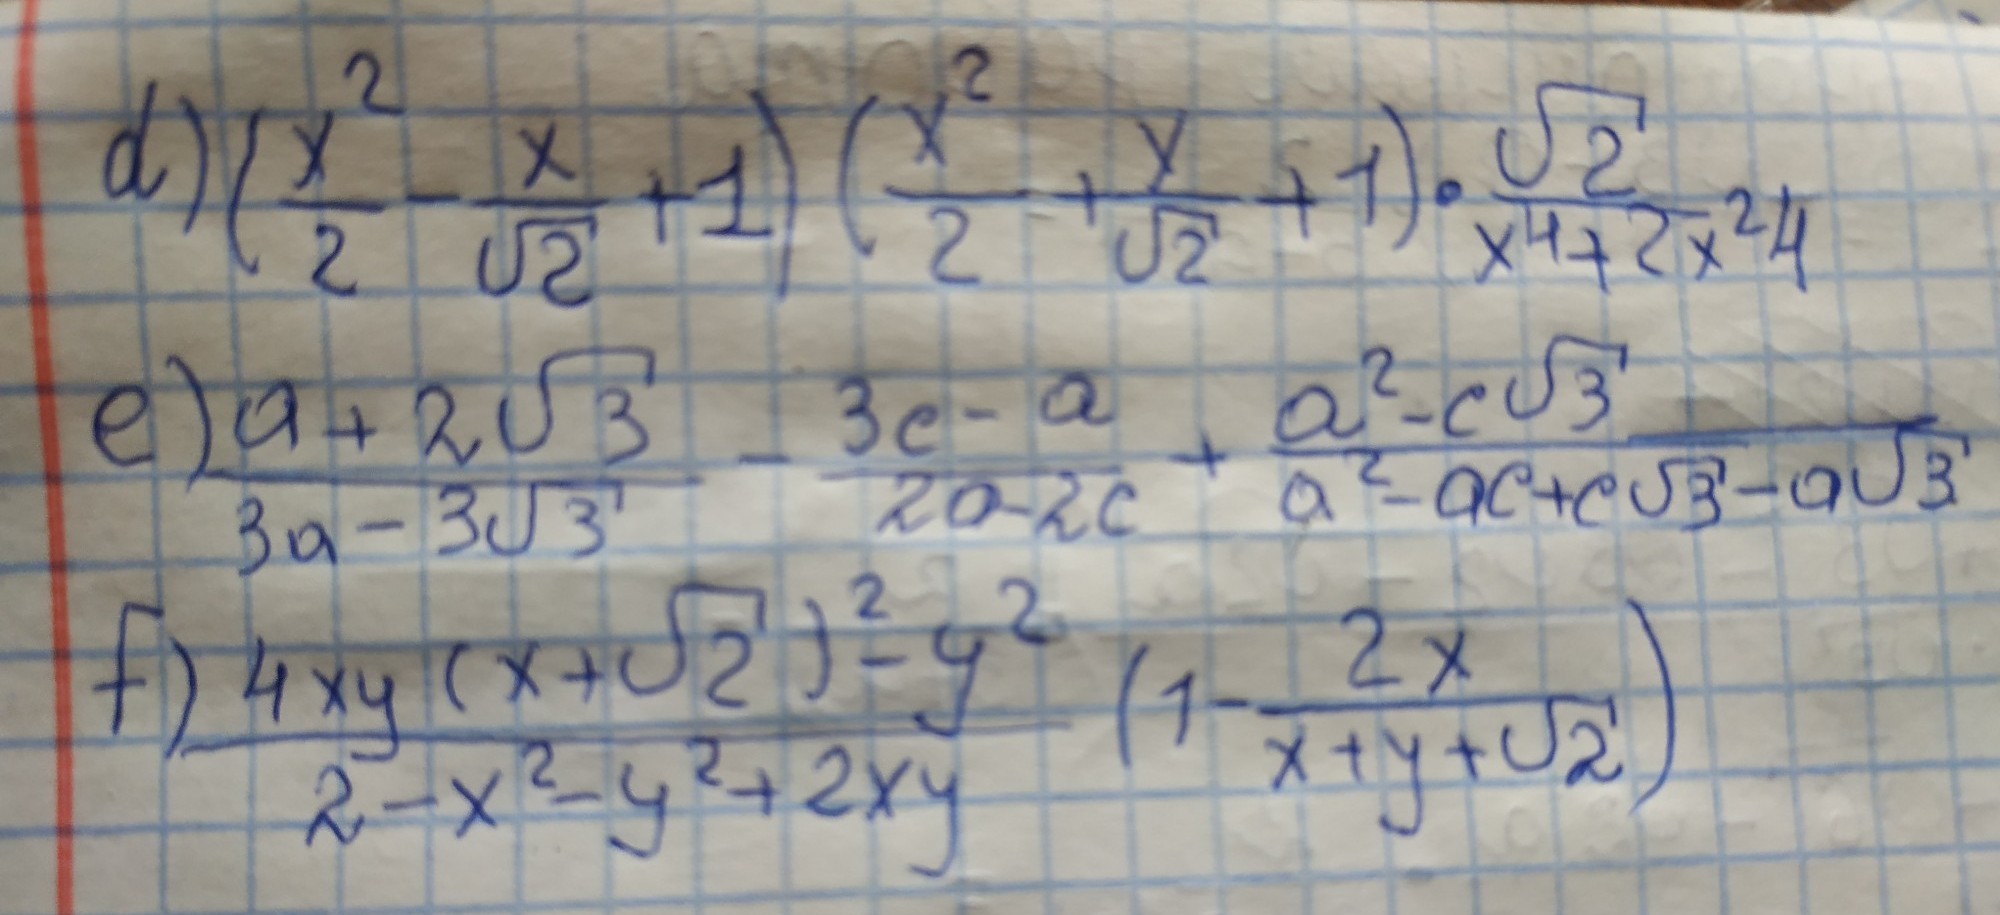 d) (x²/2 - x/√2 + 1) (x²/2 + x/√2 + 1) · √2/(x⁴+2x²4)
e) (a+2√3)/(3a-3√3) - (3c-a)/(2a-2c) + (a²-c√3)/(a²-ac+c√3-a√3)
f) (4xy(x+√2)²-y²)/(2-x²-y²+2xy) (1 - 2x/(x+y+√2))